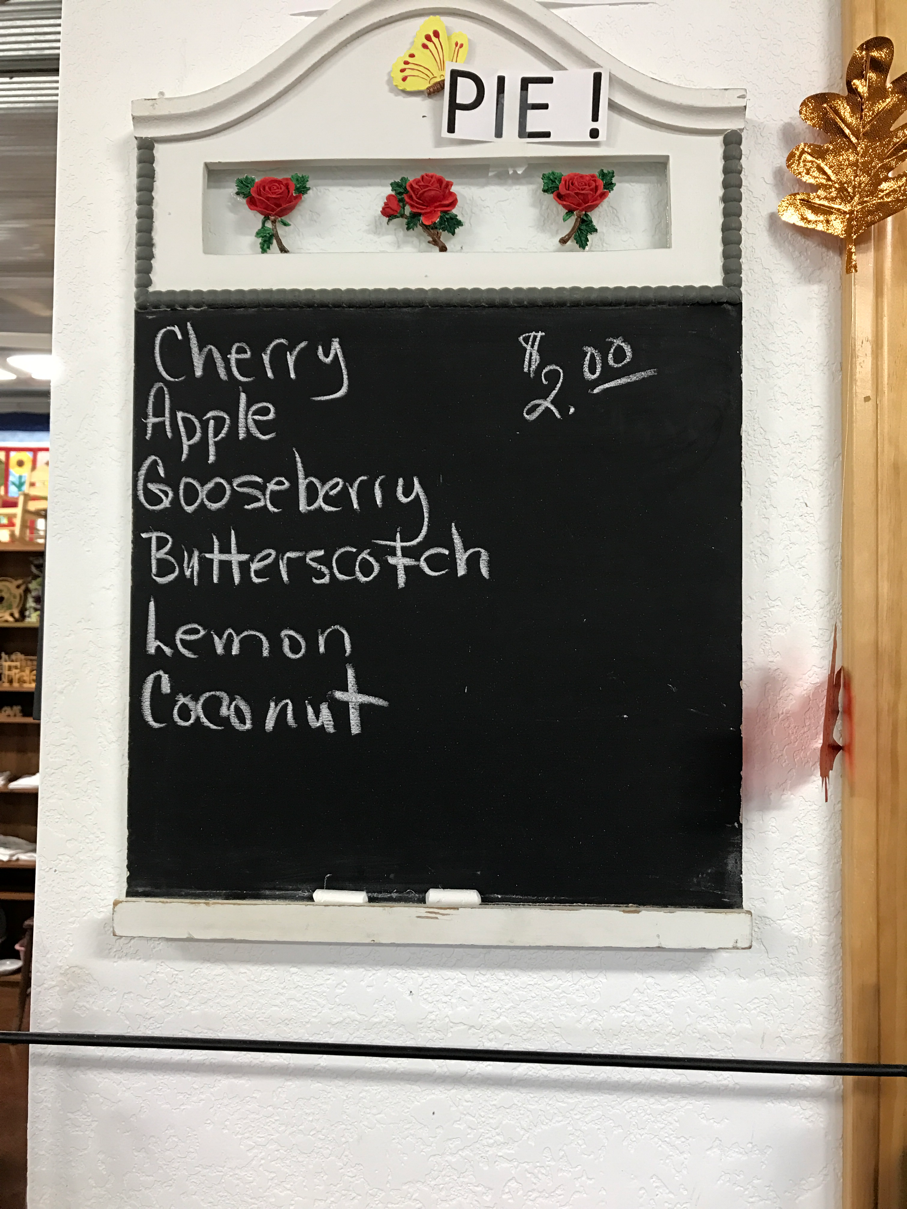 PIE!
Cherry $2.00
Apple
Gooseberry
Butterscotch
Lemon
Coconut